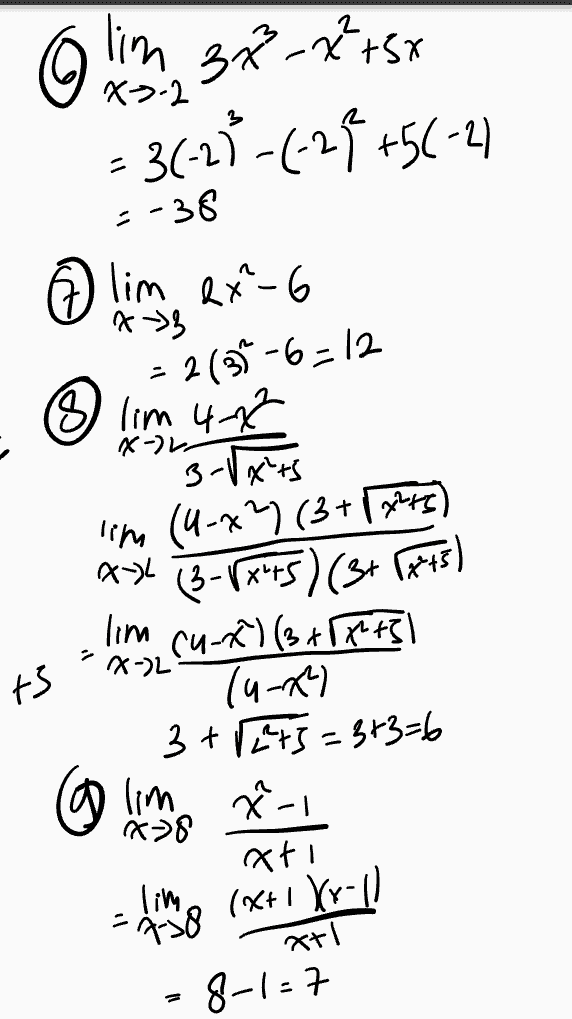 ⑥ lim x→-2 3x³ - x² + 5x
= 3(-2)³ - (-2)² + 5(-2)
= -38
⑦ lim x→3 2x² - 6
= 2(3)² - 6 = 12
⑧ lim x→2 (4-x²)/(3-√(x²+5))
lim x→2 ((4-x²)(3+√(x²+5)))/((3-√(x²+5))(3+√(x²+5)))
= lim x→2 ((4-x²)(3+√(x²+5)))/(4-x²)
+5
3 + √(2²+5) = 3+3=6
⑨ lim x→8 (x²-1)/(x+1)
= lim x→8 ((x+1)(x-1))/(x+1)
= 8-1=7